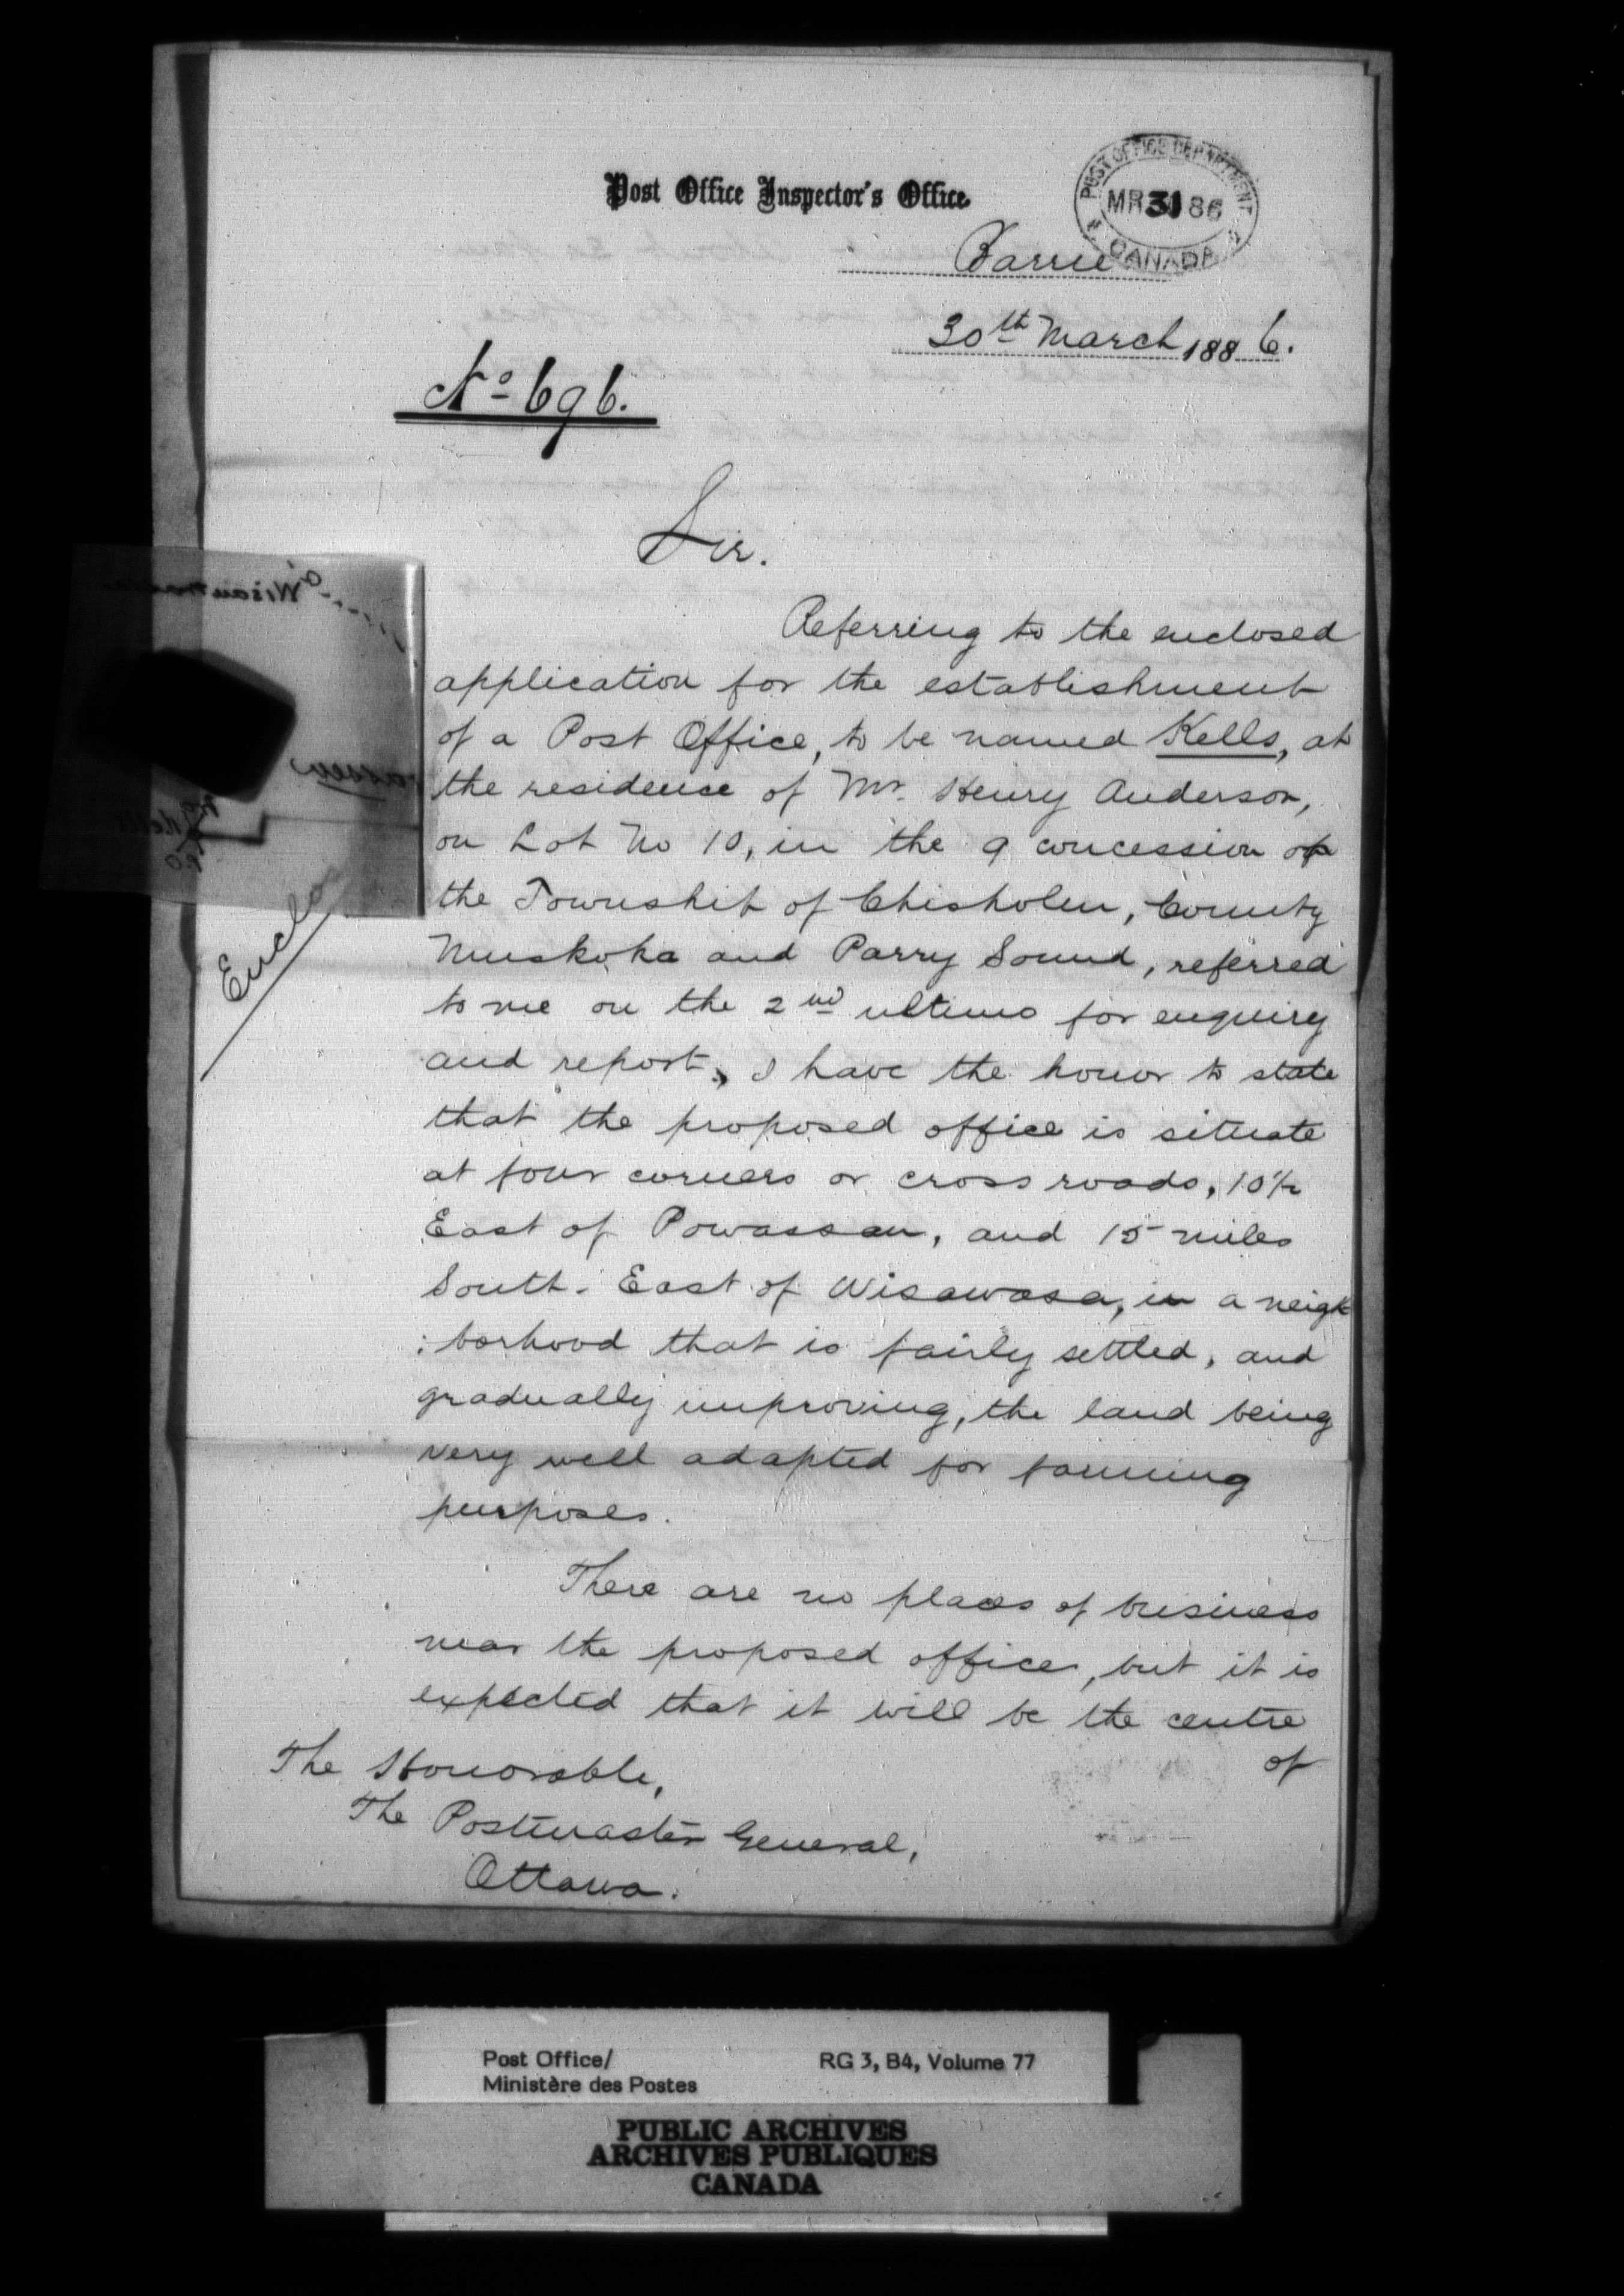 Post Office Inspector's Office
POST OFFICE DEPARTMENT
MR 31 86
CANADA
Barrie
30th March 1886.
No 696.
Sir.
Referring to the enclosed
application for the establishment
of a Post Office, to be named Kells, at
the residence of Mr. Henry Anderson,
on Lot No 10, in the 9 concession of
the Township of Chisholm, County
Muskoka and Parry Sound, referred
to me on the 2nd ultimo for enquiry
and report, I have the honor to state
that the proposed office is situate
at four corners or cross roads, 10½
East of Powassan, and 15 miles
South-East of Wisawasa, in a neigh
:borhood that is fairly settled, and
gradually improving, the land being
very well adapted for farming
purposes.
There are no places of business
near the proposed office, but it is
expected that it will be the centre
of
The Honorable,
The Postmaster General,
Ottawa.
Post Office/
Ministère des Postes
RG 3, B4, Volume 77
PUBLIC ARCHIVES
ARCHIVES PUBLIQUES
CANADA